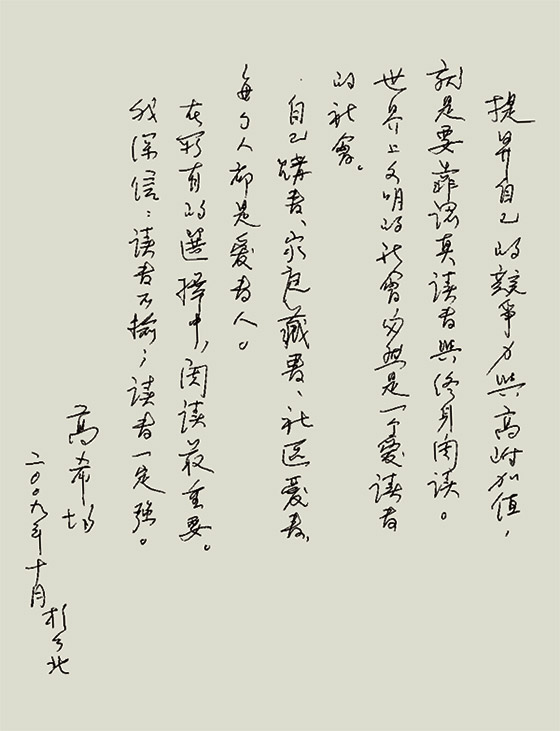 提昇自己的競爭力與高附加值，
就是要靠認真读書與终身阅读。
世界上文明的社會必然是一个爱读書
的社會。
自己購書、家庭藏書、社區爱書，
每个人都是爱書人。
在所有的選擇中，阅读最重要。
我深信：读書不输；读書一定强。
高希均
二〇〇九年十月
於台北